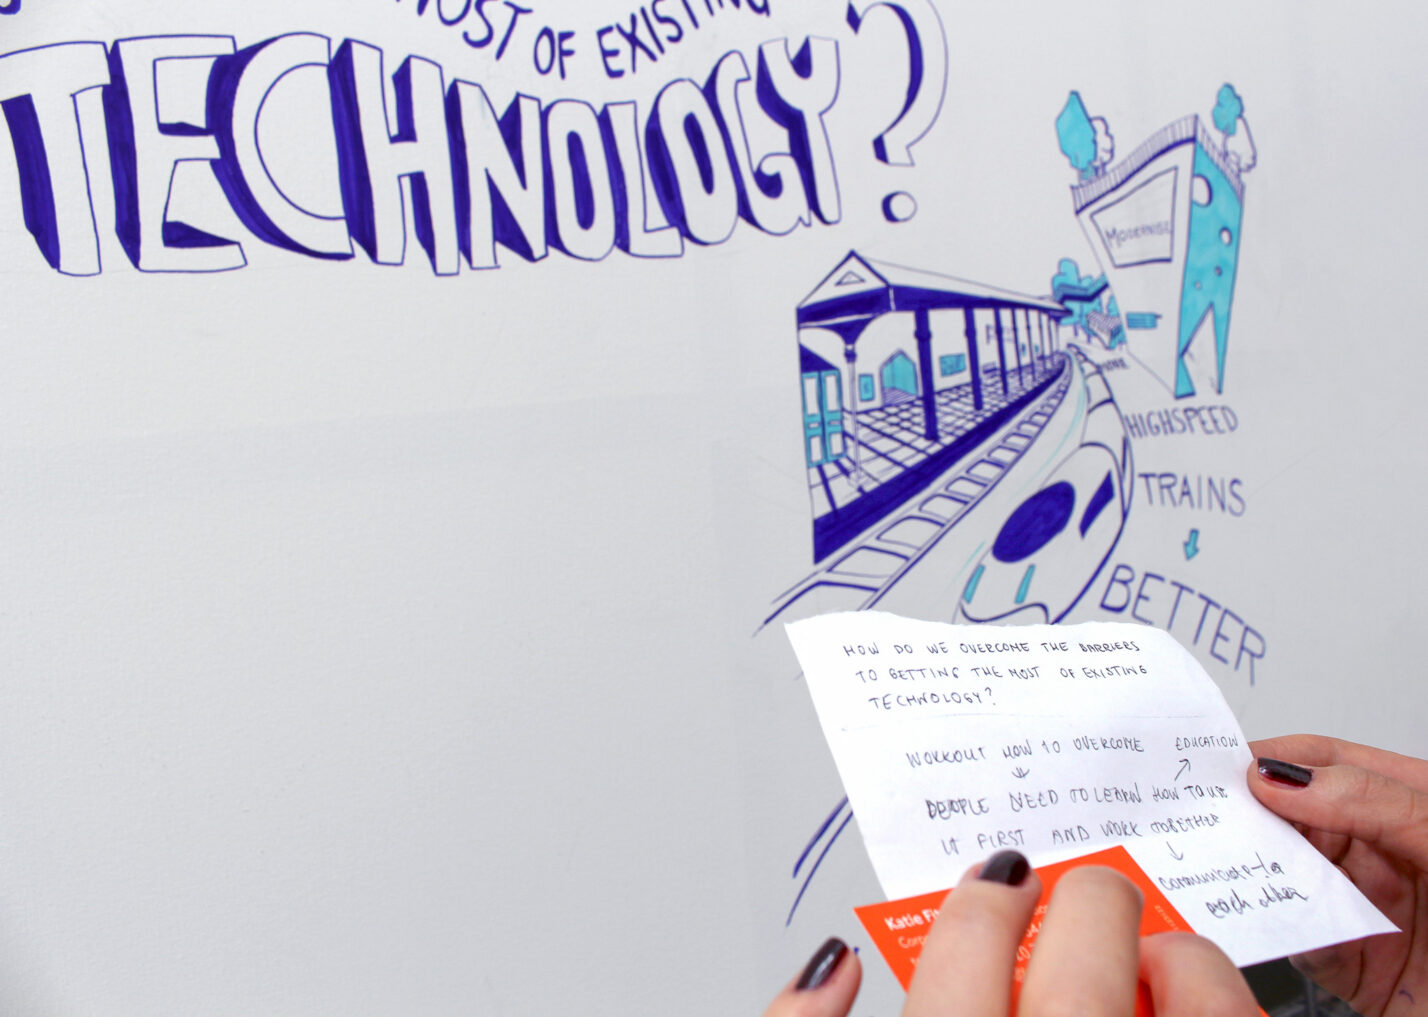 MOST OF EXISTING
TECHNOLOGY?
MODERNISE
HIGHSPEED
TRAINS
BETTER
HOW DO WE OVERCOME THE BARRIERS
TO GETTING THE MOST OF EXISTING
TECHNOLOGY?
WORKOUT HOW TO OVERCOME EDUCATION
PEOPLE NEED TO LEARN HOW TO USE
IT FIRST AND WORK TOGETHER
communicate to
each other
Katie